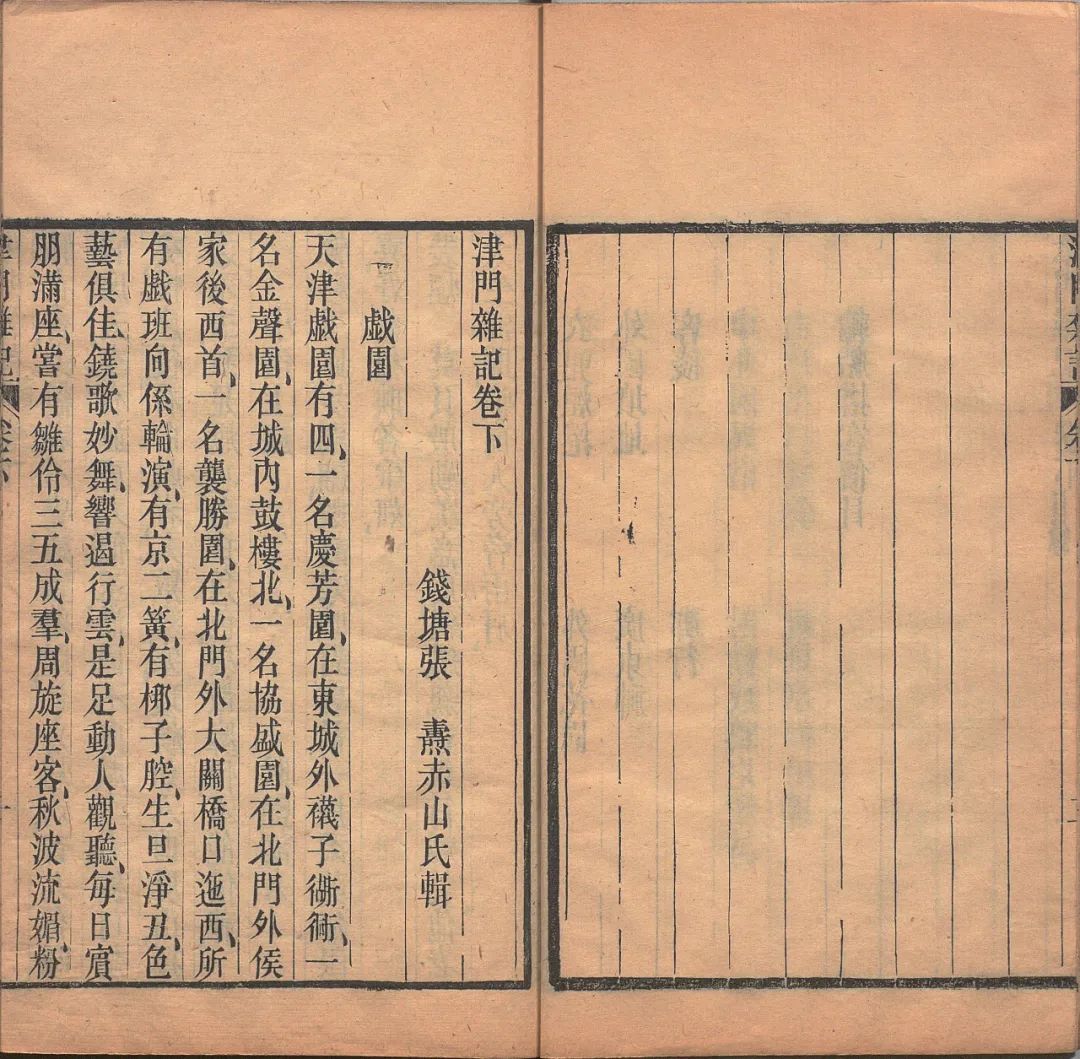 津門雜記 卷下
津門雜記卷下
錢塘張 燾赤山氏輯
戯園
天津戯園有四、一名慶芳園、在東城外襪子衚衕、一
名金聲園、在城內鼓樓北、一名協盛園、在北門外侯
家後西首、一名襲勝園、在北門外大關橋口迤西、所
有戯班向係輪演、有京二簧、有梆子腔、生旦淨丑、色
藝俱佳、鐃歌妙舞、響遏行雲、是足動人觀聽、每日賓
朋滿座、嘗有雛伶三五成羣、周旋座客、秋波流媚、粉
津門雜記 卷下